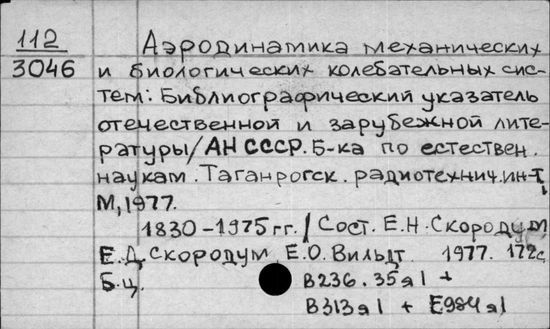 112
3046
Аэродинамика механических
и биологических колебательных сис-
тем: Библиографический указатель
отечественной и зарубежной лите-
ратуры/АН СССР. Б-ка по естествен.
наукам. Таганрогск. радиотехнич. ин-т,
М, 1977.
1830-1975 гг. / Сост. Е.Н. Скородум
Е.Д. Скородум Е.О. Вильдт 1977. 172с
Б.ц. В236.35я1 +
В313я1 + Е984я1